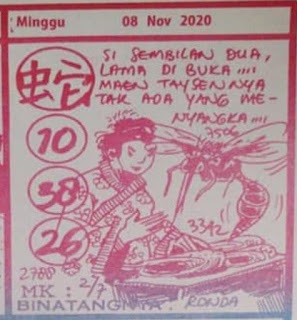 Minggu 08 Nov 2020
SI SEMBILAN DUA,
LAMA DI BUKA....
MAEN TAYSENNYA
TAK ADA YANG ME-
NYANGKA....
蛇
7506
10
38
3342
26
2788
MK : 2/7
BINATANGNYA : RONDA